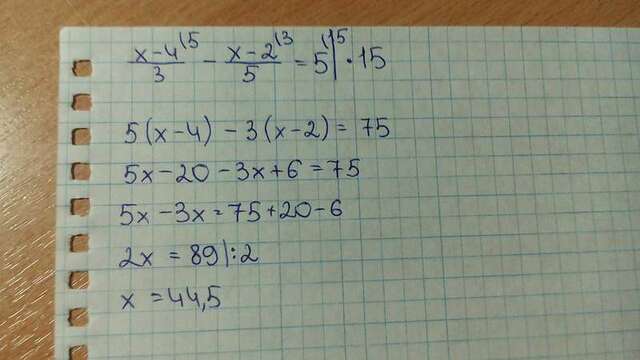 x-4/3 \5 - x-2/5 \3 = 5 \15 | · 15
5(x-4) - 3(x-2) = 75
5x-20-3x+6=75
5x-3x=75+20-6
2x = 89|:2
x = 44,5